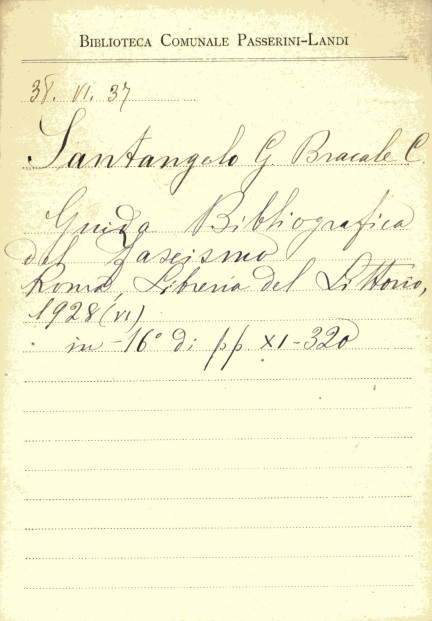 BIBLIOTECA COMUNALE PASSERINI-LANDI
3S. VI. 37
Santangelo G. Bracale C.
Guida Bibliografica
del Fascismo
Roma, Libreria del Littorio,
1928 (VI)
in-16° di pp XI-320